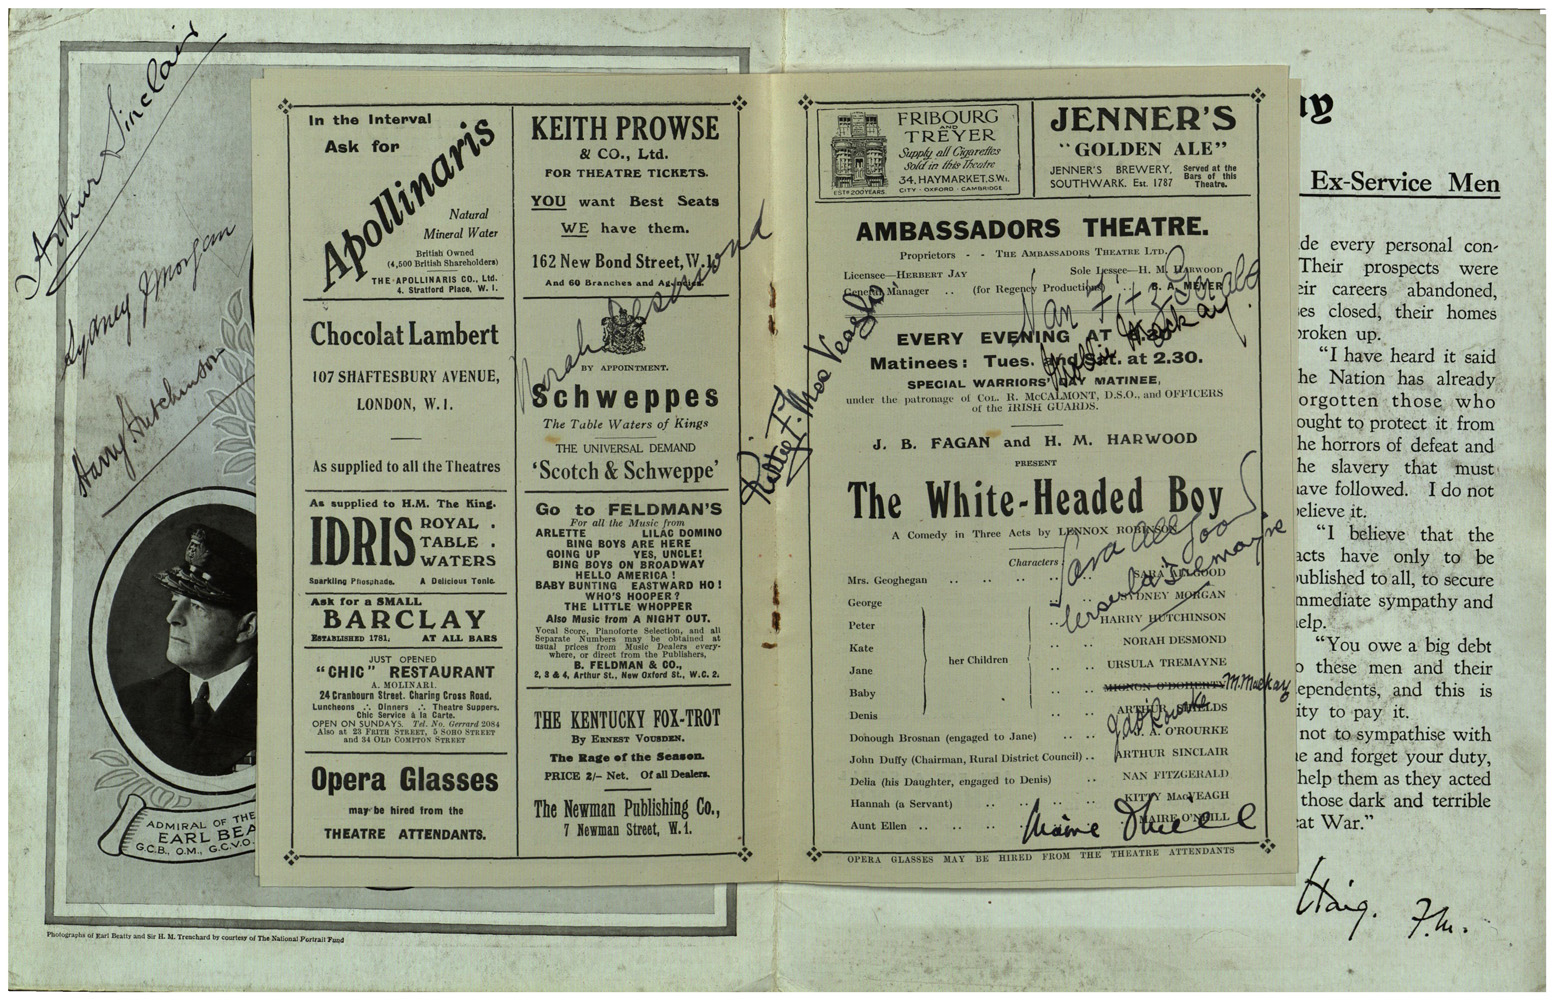 Arthur Sinclair
Sydney J Morgan
Harry Hutchinson
ADMIRAL OF THE
EARL BEA
G.C.B., O.M., G.C.V.O.
Photographs of Earl Beatty and Sir H. M. Trenchard by courtesy of The National Portrait Fund
In the Interval
Ask for
Apollinaris
Natural
Mineral Water
British Owned
(4,500 British Shareholders)
THE APOLLINARIS CO., Ltd.
4, Stratford Place, W. 1.
Chocolat Lambert
107 SHAFTESBURY AVENUE,
LONDON, W.1.
As supplied to all the Theatres
As supplied to H.M. The King.
IDRIS ROYAL .
TABLE .
WATERS
Sparkling Phosphade. A Delicious Tonic.
Ask for a SMALL
BARCLAY
ESTABLISHED 1781, AT ALL BARS
JUST OPENED
"CHIC" RESTAURANT
A. MOLINARI.
24 Cranbourn Street, Charing Cross Road,
Luncheons ∴ Dinners ∴ Theatre Suppers.
Chic Service à la Carte.
OPEN ON SUNDAYS. Tel. No. Gerrard 2084
Also at 23 FRITH STREET, 5 SOHO STREET
and 34 OLD COMPTON STREET
Opera Glasses
may be hired from the
THEATRE ATTENDANTS.
KEITH PROWSE
& CO., Ltd.
FOR THEATRE TICKETS.
YOU want Best Seats
WE have them.
162 New Bond Street, W.1.
And 60 Branches and Agencies.
Norah Desmond
BY APPOINTMENT.
Schweppes
The Table Waters of Kings
THE UNIVERSAL DEMAND
'Scotch & Schweppe'
Go to FELDMAN'S
For all the Music from
ARLETTE LILAC DOMINO
BING BOYS ARE HERE
GOING UP YES, UNCLE!
BING BOYS ON BROADWAY
HELLO AMERICA!
BABY BUNTING EASTWARD HO!
WHO'S HOOPER?
THE LITTLE WHOPPER
Also Music from A NIGHT OUT.
Vocal Score, Pianoforte Selection, and all
Separate Numbers may be obtained at
usual prices from Music Dealers every-
where, or direct from the Publishers,
B. FELDMAN & CO.,
2, 3 & 4, Arthur St., New Oxford St., W.C. 2.
THE KENTUCKY FOX-TROT
By ERNEST VOUSDEN.
The Rage of the Season.
PRICE 2/- Net. Of all Dealers.
The Newman Publishing Co.,
7 Newman Street, W.1.
MacVeagh
FRIBOURG
AND
TREYER
Supply all Cigarettes
Sold in this Theatre
34, HAYMARKET, S.W.1.
CITY · OXFORD · CAMBRIDGE
ESTD 200 YEARS.
JENNER'S
"GOLDEN ALE"
JENNER'S BREWERY,
SOUTHWARK. Est. 1787
Served at the
Bars of this
Theatre.
AMBASSADORS THEATRE.
Proprietors - - THE AMBASSADORS THEATRE LTD.
Licensee—HERBERT JAY Sole Lessee—H. M. HARWOOD
General Manager .. (for Regency Productions) .. B. A. MEYER
Nan Fitzgerald
EVERY EVENING AT 8.30
Mackay
Matinees: Tues. and Sat. at 2.30.
SPECIAL WARRIORS' DAY MATINEE,
under the patronage of COL. R. McCALMONT, D.S.O., and OFFICERS
of the IRISH GUARDS.
J. B. FAGAN and H. M. HARWOOD
PRESENT
The White-Headed Boy
A Comedy in Three Acts by LENNOX ROBINSON
Sara Allgood
Ursula Tremayne
Characters:
Mrs. Geoghegan .. .. .. .. .. SARA ALLGOOD
George SYDNEY MORGAN
Peter .. HARRY HUTCHINSON
Kate .. .. NORAH DESMOND
Jane her Children .. .. URSULA TREMAYNE
Baby .. .. MIGNON O'DOHERTY M. Mackay
Denis .. .. ARTHUR SHIELDS
Donough Brosnan (engaged to Jane) .. .. J. A. O'ROURKE
J A O'Rourke
John Duffy (Chairman, Rural District Council) .. ARTHUR SINCLAIR
Delia (his Daughter, engaged to Denis) .. NAN FITZGERALD
Hannah (a Servant) .. .. .. .. .. KITTY MacVEAGH
Aunt Ellen .. .. .. .. .. MAIRE O'NEILL
Maire O'Neill
OPERA GLASSES MAY BE HIRED FROM THE THEATRE ATTENDANTS
ay
Ex-Service Men
de every personal con-
Their prospects were
eir careers abandoned,
es closed, their homes
roken up.
"I have heard it said
he Nation has already
orgotten those who
ought to protect it from
he horrors of defeat and
he slavery that must
ave followed. I do not
elieve it.
"I believe that the
acts have only to be
ublished to all, to secure
mmediate sympathy and
elp.
"You owe a big debt
o these men and their
ependents, and this is
ity to pay it.
not to sympathise with
e and forget your duty,
help them as they acted
those dark and terrible
at War."
Haig. F.M.